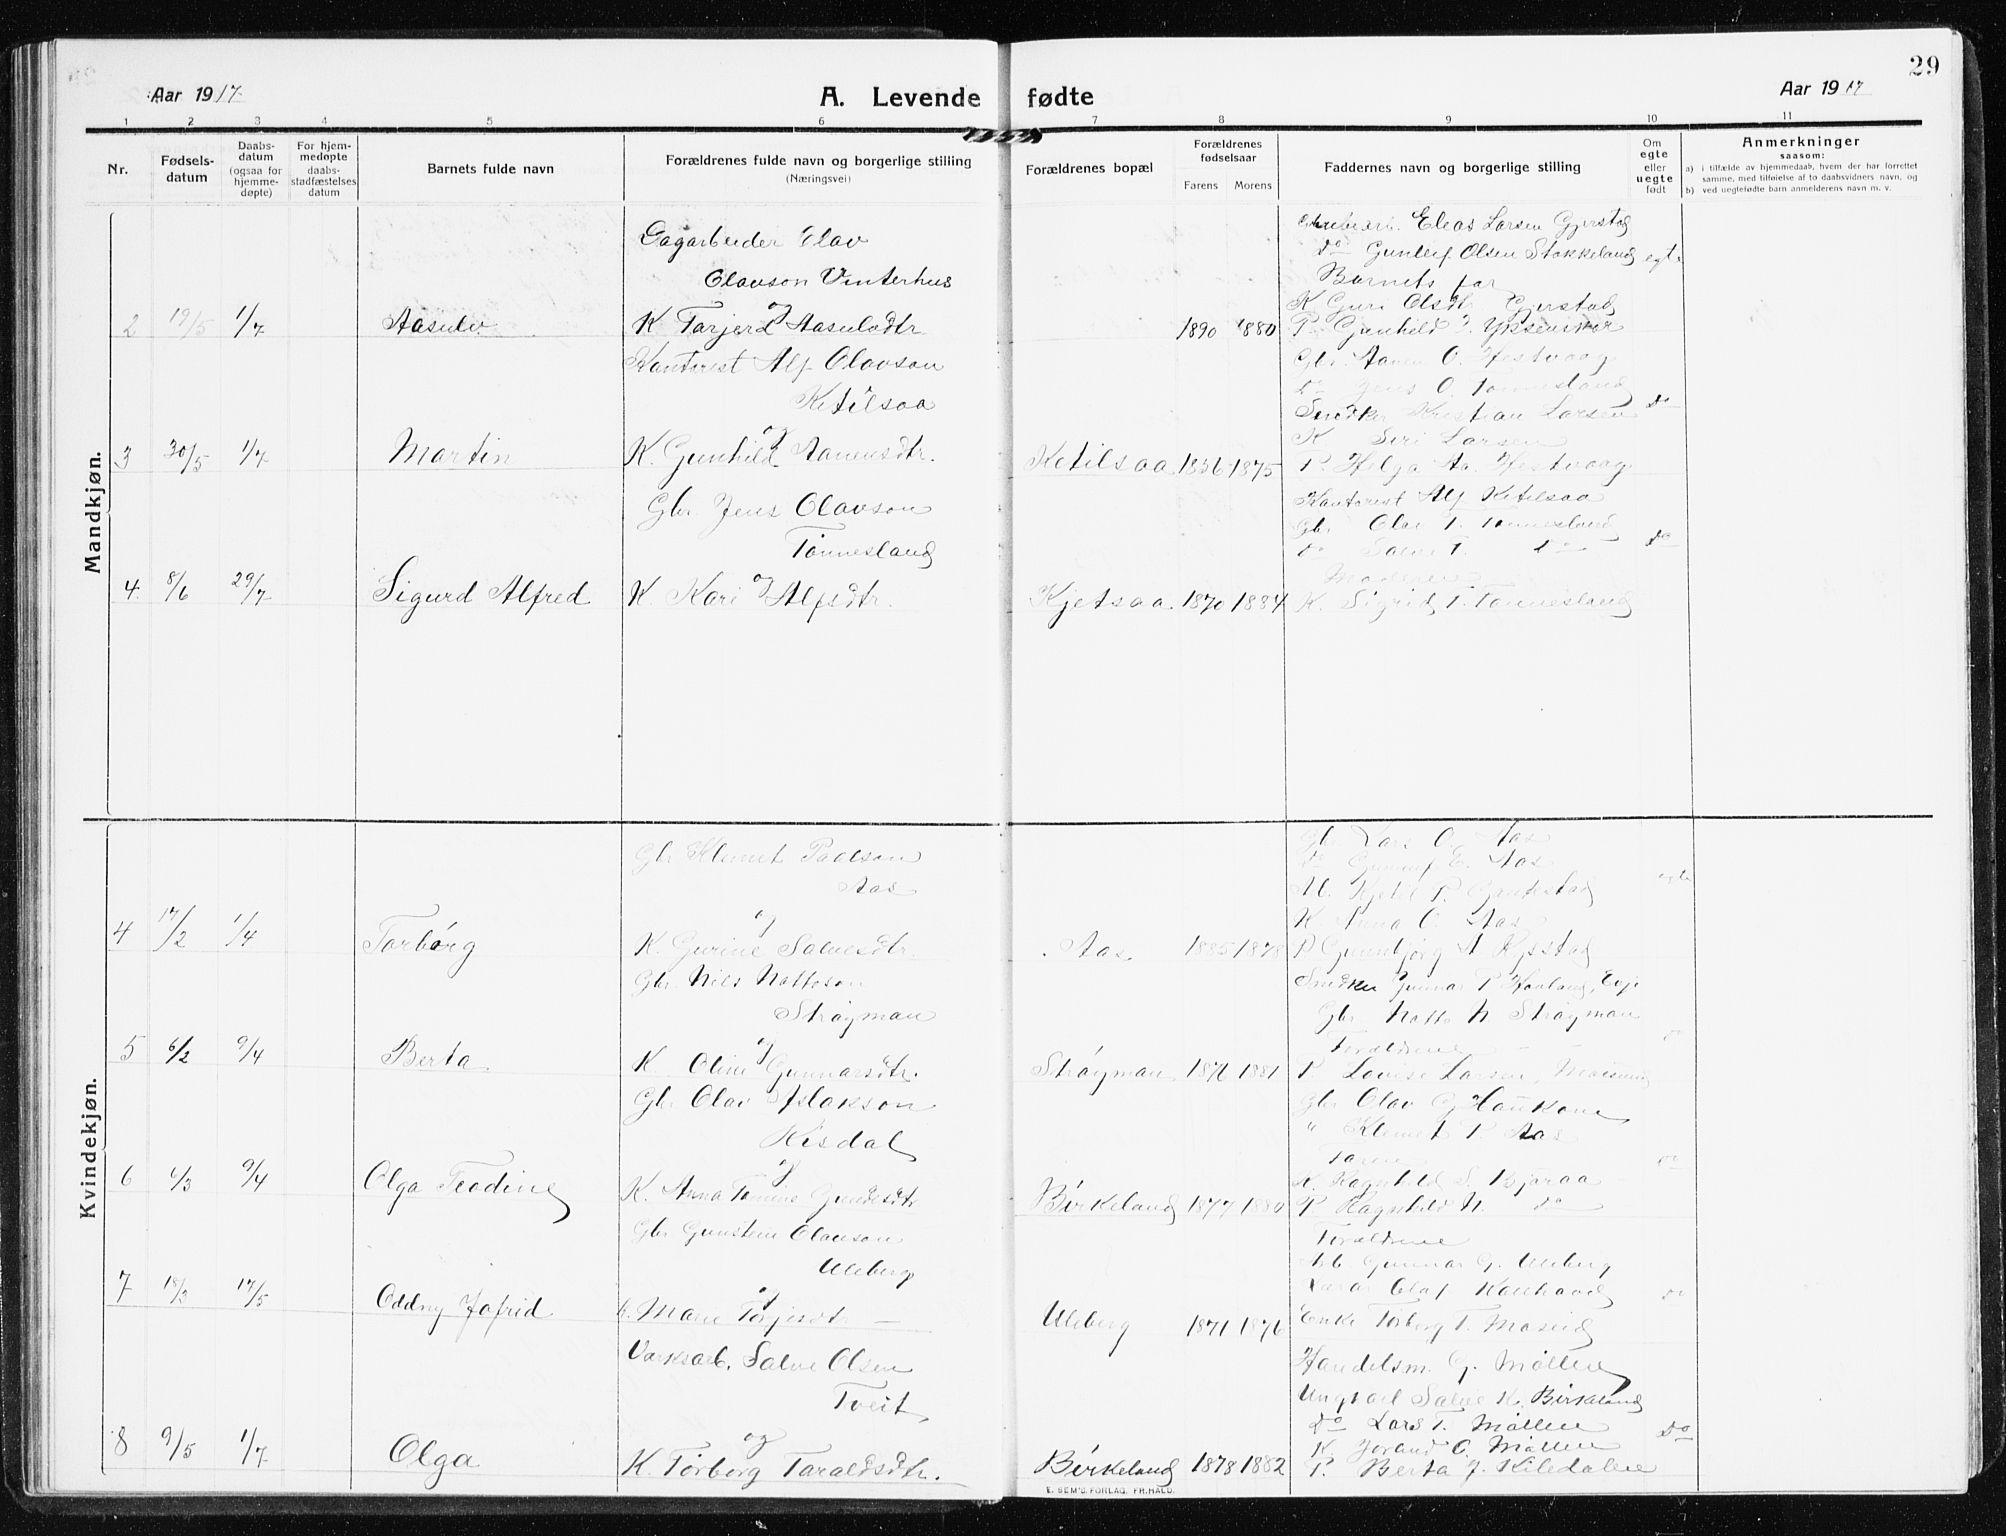 29
Aar 1917. A. Levende fødte Aar 1917
1 2 3 4 5 6 7 8 9 10 11
Nr.
Fødsels-
datum
Daabs-
datum
(ogsaa for
hjemme-
døpte)
For hjem-
medøpte
daabs-
stadfæstelses
datum
Barnets fulde navn
Forældrenes fulde navn og borgerlige stilling
(Næringsvei)
Forældrenes bopæl
Forældrenes
fødselsaar
Farens Morens
Faddernes navn og borgerlige stilling
Om
egte
eller
uegte
født
Anmerkninger
saasom:
a) i tilfælde av hjemmedaab, hvem der har forrettet
samme, med tilføielse af to daabsvidners navn, og
b) ved uegtefødte barn anmelderens navn m. v.
Mandkjøn.
2 19/5 1/7 Aasulv
Dagarbeider Olav
Olavson Vinterhus
og
K Tarjerd Aasulvdtr
1890 1880
Eleas Larsen Gjerstad
Do Gunleif Olsen Stokkeland
Barnets far
K Guri Olsdtr Gjerstad
P. Gunhild
egte
3 30/5 1/7 Martin
Kantorist Alf Olavson
Ketilsaa
og
K. Gunhild Aanensdtr.
Ketilsaa 1856 1875
Gbr. Aanen O. Hestvaag
Do Jens O. Tonnesland
Snedker Kristian Larsen
K Siri Larsen
P. Helga Aa. Hestvaag
Do
4. 8/6 29/7 Sigurd Alfred
Gbr. Jens Olavson
Tonnesland
og
K. Kari Alfsdtr.
Kjetsaa 1870 1884
Kantorist Alf Ketilsaa
Gbr Olav T. Tonnesland
Do Salve T. Do
Moderen
K. Sigrid T. Tonnesland
Do
Kvindekjøn.
4 17/2 1/4 Torbørg
Gbr Klemet Paalson
Aas
og
K. Gurine Salvesdtr.
Aas 1885 1878
Gbr Lars O. Aas
Do Gunleif E. Aas
M. Kjetil P.
K Anna O. Aas
P Gunnbjørg
egte
5 6/2 9/4 Berta
Gbr. Nils Nottoson
Strøyman
og
K Oline Gunnarsdtr.
Strøyman 1876 1881
Snedker Gunnar P Haaland, Evje
Gbr Notto N Strøyman
Forældrene
P. Lovise Larsen,
Do
6 6/3 9/4 Olga Teodine
Gbr Olav Aslakson
Risdal
og
K. Anna Tomine
Birkeland 1877 1880
Gbr Olav G Haukom
" Klemet P. Aas
Faren
K. Ragnhild S. Bjoraa
P. Ragnhild N. Do
Do
7 18/3 17/5 Oddny Jofrid
Gbr Gunstein Olavson
Uleberg
og
K. Marie Torjusdtr
Uleberg 1871 1876
Forældrene
Gunnar G. Uleberg
Olaf
Enke Torborg T.
Do
8 9/5 1/7 Olga
Verksarb. Salve Olsen
Tveit
og
K. Torborg Taraldsdtr.
Birkeland 1878 1882
Handelsm. G. Mollen
Ungkarl Salve K. Birkeland
Do Lars T. Mollen
K. Jorand O. Mollen
P. Berta J. Kiledalen
Do
E. SEM'S FORLAG, FR.HALD.